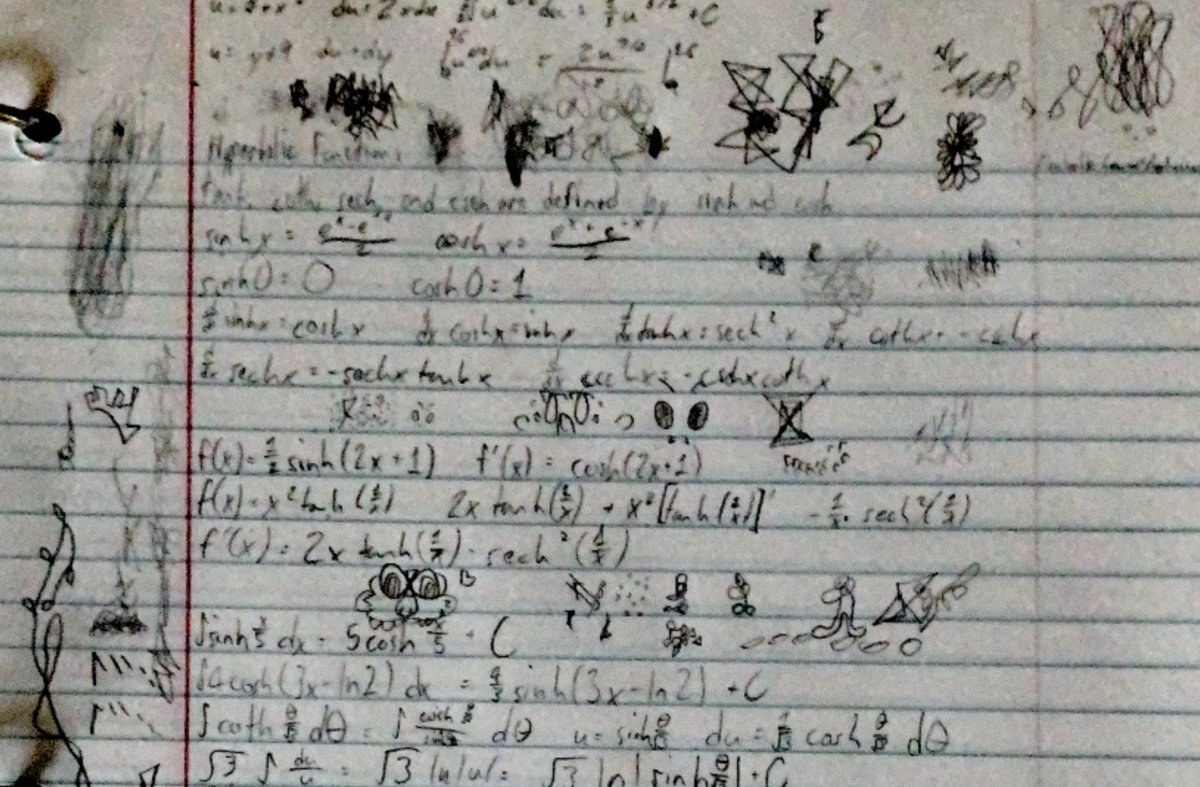 du = 2xdx
u = y+9 du = dy
Hyperbolic Functions
tanh, coth, sech, and csch are defined by sinh and cosh
sinh x = \frac{e^x - e^{-x}}{2} cosh x = \frac{e^x + e^{-x}}{2}
sinh 0 = 0 cosh 0 = 1
\frac{d}{dx} sinhx = coshx \frac{d}{dx} coshx = sinhx \frac{d}{dx} tanhx = sech² x \frac{d}{dx} cothx =
\frac{d}{dx} sechx = -sechx tanhx \frac{d}{dx} cschx = -cschx coth x
f(x) = \frac{1}{2} sinh(2x+1) f'(x) = cosh(2x+1)
f(x) = x² tanh(\frac{1}{x}) 2x tanh(\frac{1}{x}) + x² [tanh(\frac{1}{x})]' -\frac{1}{x²} sech²(\frac{1}{x})
f'(x) = 2x tanh(\frac{1}{x}) - sech²(\frac{1}{x})
∫sinh \frac{x}{5} dx = 5cosh \frac{x}{5} + C
∫4cosh(3x-ln2) dx = \frac{4}{3} sinh(3x-ln2) + C
∫coth \frac{θ}{√3} dθ = ∫ dθ u = sinh \frac{θ}{√3} du = \frac{1}{√3} cosh \frac{θ}{√3} dθ
√3 ∫ \frac{du}{u} = √3 ln|u| = √3 ln|sinh \frac{θ}{√3}| + C